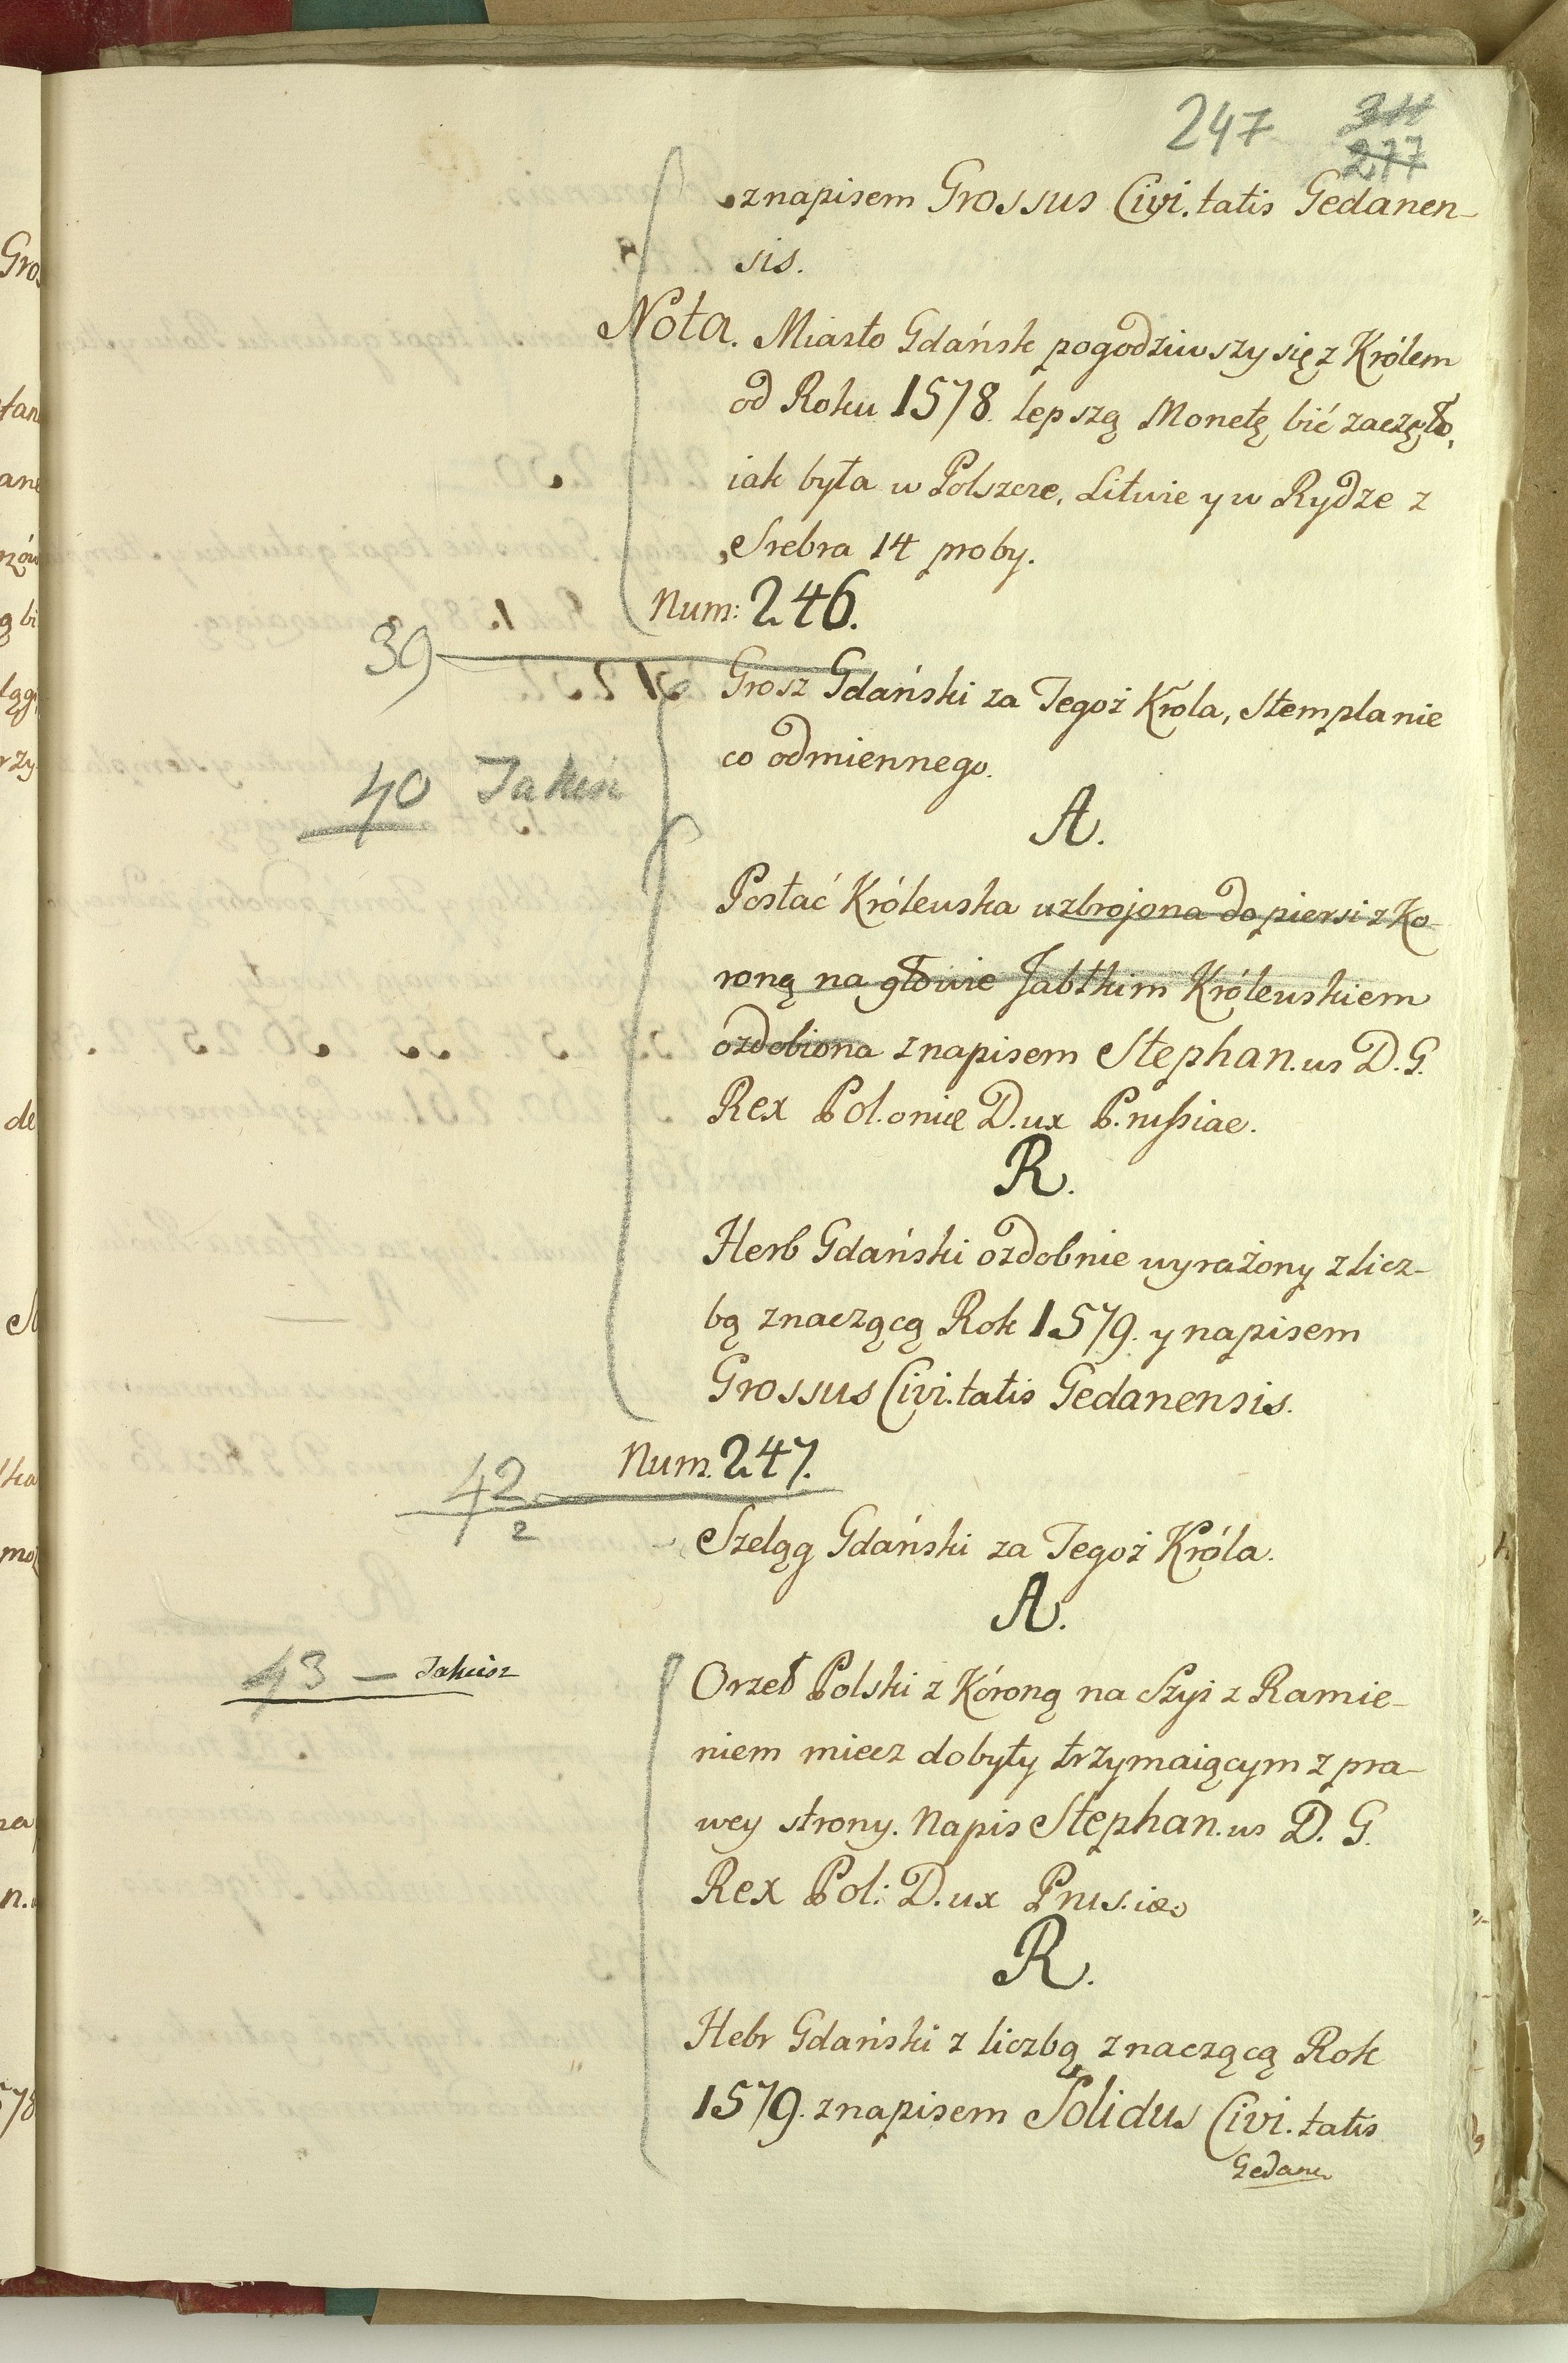 247 311
277
z napisem Grossus Civi.tatis Gedanen-
sis.
Nota. Miasto Gdańsk pogodziwszy się z Królem
od Roku 1578. lepszą Monetę bić zaczęło,
iak była w Polszcze, Litwie y w Rydze z
Srebra 14 proby.
Num: 246.
39
Grosz Gdański za Tegoż Krola, Stempla nie
co odmiennego.
40 Jakusz
A.
Postać Królewska uzbrojona do piersi z Ko-
roną na głowie Jabłkim Królewskiem
ozdobiona z napisem Stephan.us D.G.
Rex Pol.oniæ D.ux P.rußiae.
R.
Herb Gdański ozdobnie wyrażony z licz-
bą znaczącą Rok 1579. y napisem
Grossus Civi.tatis Gedanensis.
Num. 247.
42
2
Szeląg Gdański za Tegoż Króla.
A.
43 — Jakusz
Orzeł Polski z Koroną na Szyi z Ramie-
niem miecz dobyty trzymaiącym z pra-
wey strony. Napis Stephan.us D. G.
Rex Pol: D.ux Prus.iæ.
R.
Hebr Gdański z liczbą znaczącą Rok
1579. z napisem Solidus Civi.tatis
Gedane